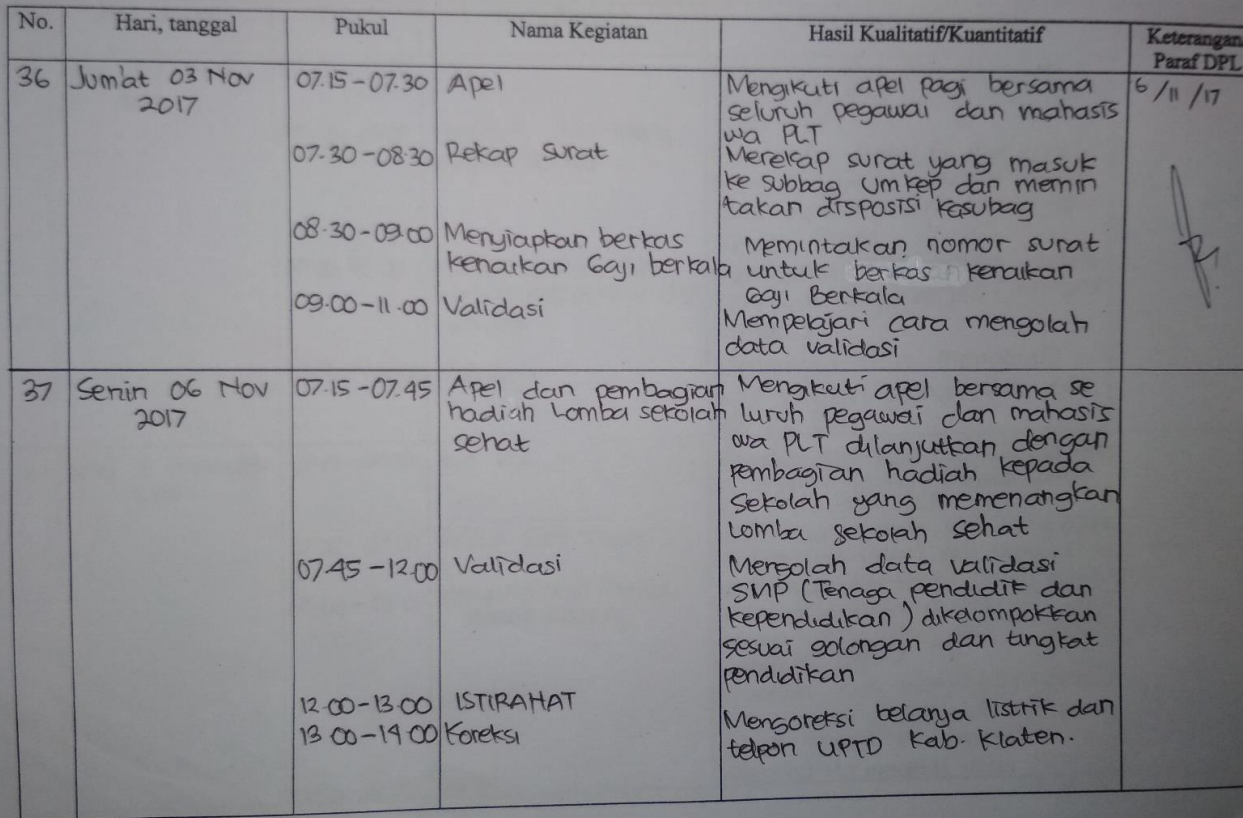 No. Hari, tanggal Pukul Nama Kegiatan Hasil Kualitatif/Kuantitatif Keterangan
Paraf DPL
36 Jum'at 03 Nov 07.15-07.30 Apel Mengikuti apel pagi bersama 6/11/17
2017 seluruh pegawai dan mahasis
wa PLT
07.30-08.30 Rekap Surat Merekap surat yang masuk
ke subbag umkep dan memin
takan disposisi kasubag
08.30-09.00 Menyiapkan berkas Memintakan nomor surat
kenaikan Gaji berkala untuk berkas kenaikan
Gaji Berkala
09.00-11.00 Validasi Mempelajari cara mengolah
data validasi
37 Senin 06 Nov 07.15-07.45 Apel dan pembagian Mengikuti apel bersama se
2017 hadiah Lomba sekolah luruh pegawai dan mahasis
sehat wa PLT dilanjutkan dengan
pembagian hadiah kepada
sekolah yang memenangkan
Lomba sekolah sehat
07.45-12.00 Validasi Mengolah data validasi
SMP (Tenaga pendidik dan
kependidikan) dikelompokkan
sesuai golongan dan tingkat
pendidikan
12.00-13.00 ISTIRAHAT
13.00-14.00 Koreksi Mengoreksi belanja listrik dan
telpon UPTD Kab. Klaten.